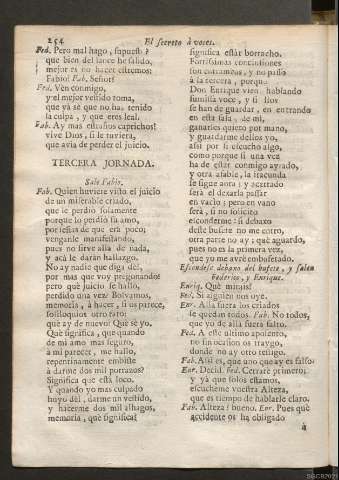 254
El secreto à voces.
Fed. Pero mal hago, supuesto
que bien del lance he salido,
mejor es no hacer estremos:
Fabio! Fab. Señor?
Fed. Ven conmigo,
y el mejor vestido toma,
que ya sè que no has tenido
la culpa, y que eres leal.
Fab. Ay mas estraños caprichos!
vive Dios, si le tuviera,
que avia de perder el juicio.
TERCERA JORNADA.
Sale Fabio.
Fab. Quien huviere visto el juicio
de un miserable criado,
que le perdiò solamente
porque lo perdiò su amo,
por señas de que era poco;
vengale manifestando,
pues no sirve allà de nada,
y acà le daràn hallazgo.
No ay nadie que diga dèl,
por mas que voy preguntando:
pero què juicio se hallò,
perdido una vez? Bolvamos,
memoria, à hacer, si os parece,
soliloquios otro rato:
què ay de nuevo? Què sè yo.
Què significa, que quando
de mi amo mas seguro,
à mi parecer, me hallo,
repentinamente embiste
à darme dos mil porrazos?
Significa que està loco.
Y quando yo mas culpado
huyo dèl, darme un vestido,
y hacerme dos mil alhagos,
memoria, què significa?
significa estàr borracho.
Fortissimas conclusiones
son entrambas, y no passo
à la tercera, porque
Don Enrique vien hablando
sumissa voce, y si ellos
se han de guardar, en entrando
en esta sala, de mi,
ganarles quiero por mano,
y guardarme dellos yo,
assi por si escucho algo,
como porque si una vez
ha de estàr conmigo ayrado,
y otra afable, la iracunda
se sigue aora; y acertado
serà el dexarla passar
en vacio; pero en vano
serà, si no solicito
esconderme: si debaxo
deste bufete no me entro,
otra parte no ay: què aguardo,
pues no es la primera vez,
que yo me avrè embufetado.
Escondese debaxo del bufete, y salen
Federico, y Enrique.
Enriq. Què mirais?
Fed. Si alguien nos oye.
Enr. Allà fuera los criados
se quedan todos. Fab. No todos,
que yo de allà fuera falto.
Fed. A este ultimo aposento,
no sin ocasion os traygo,
donde no ay otro testigo.
Fab. Assi es, que uno que ay es falso.
Enr. Decid. Fed. Cerrarè primero:
y yà que solos estamos,
escucheme vuestra Alteza,
que es tiempo de hablarle claro.
Fab. Alteza? bueno. Enr. Pues què
accidente os ha obligado
à